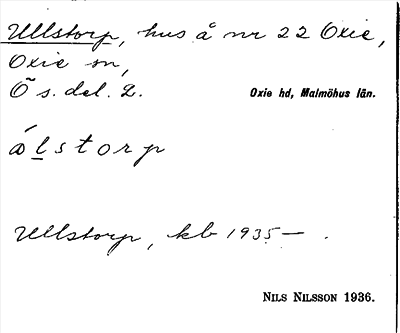 Ullstorp, hus å nr 22 Oxie,
Oxie sn,
Ö s. del. 2.
Oxie hd, Malmöhus län.
ǿlstorp
Ullstorp, kb 1935— .
NILS NILSSON 1936.